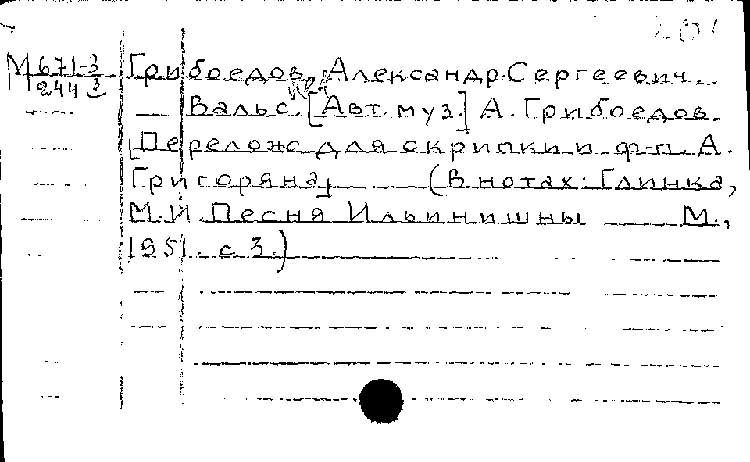 М 671-3
244 3
Грибоедов, Александр Сергеевич.
Вальс. [Авт. муз.] А. Грибоедов.
[Перелож. для скрипки и ф-п. А.
Григоряна] (В нотах: Глинка,
М.И. Песня Ильинишны М.,
1951. с 3.)